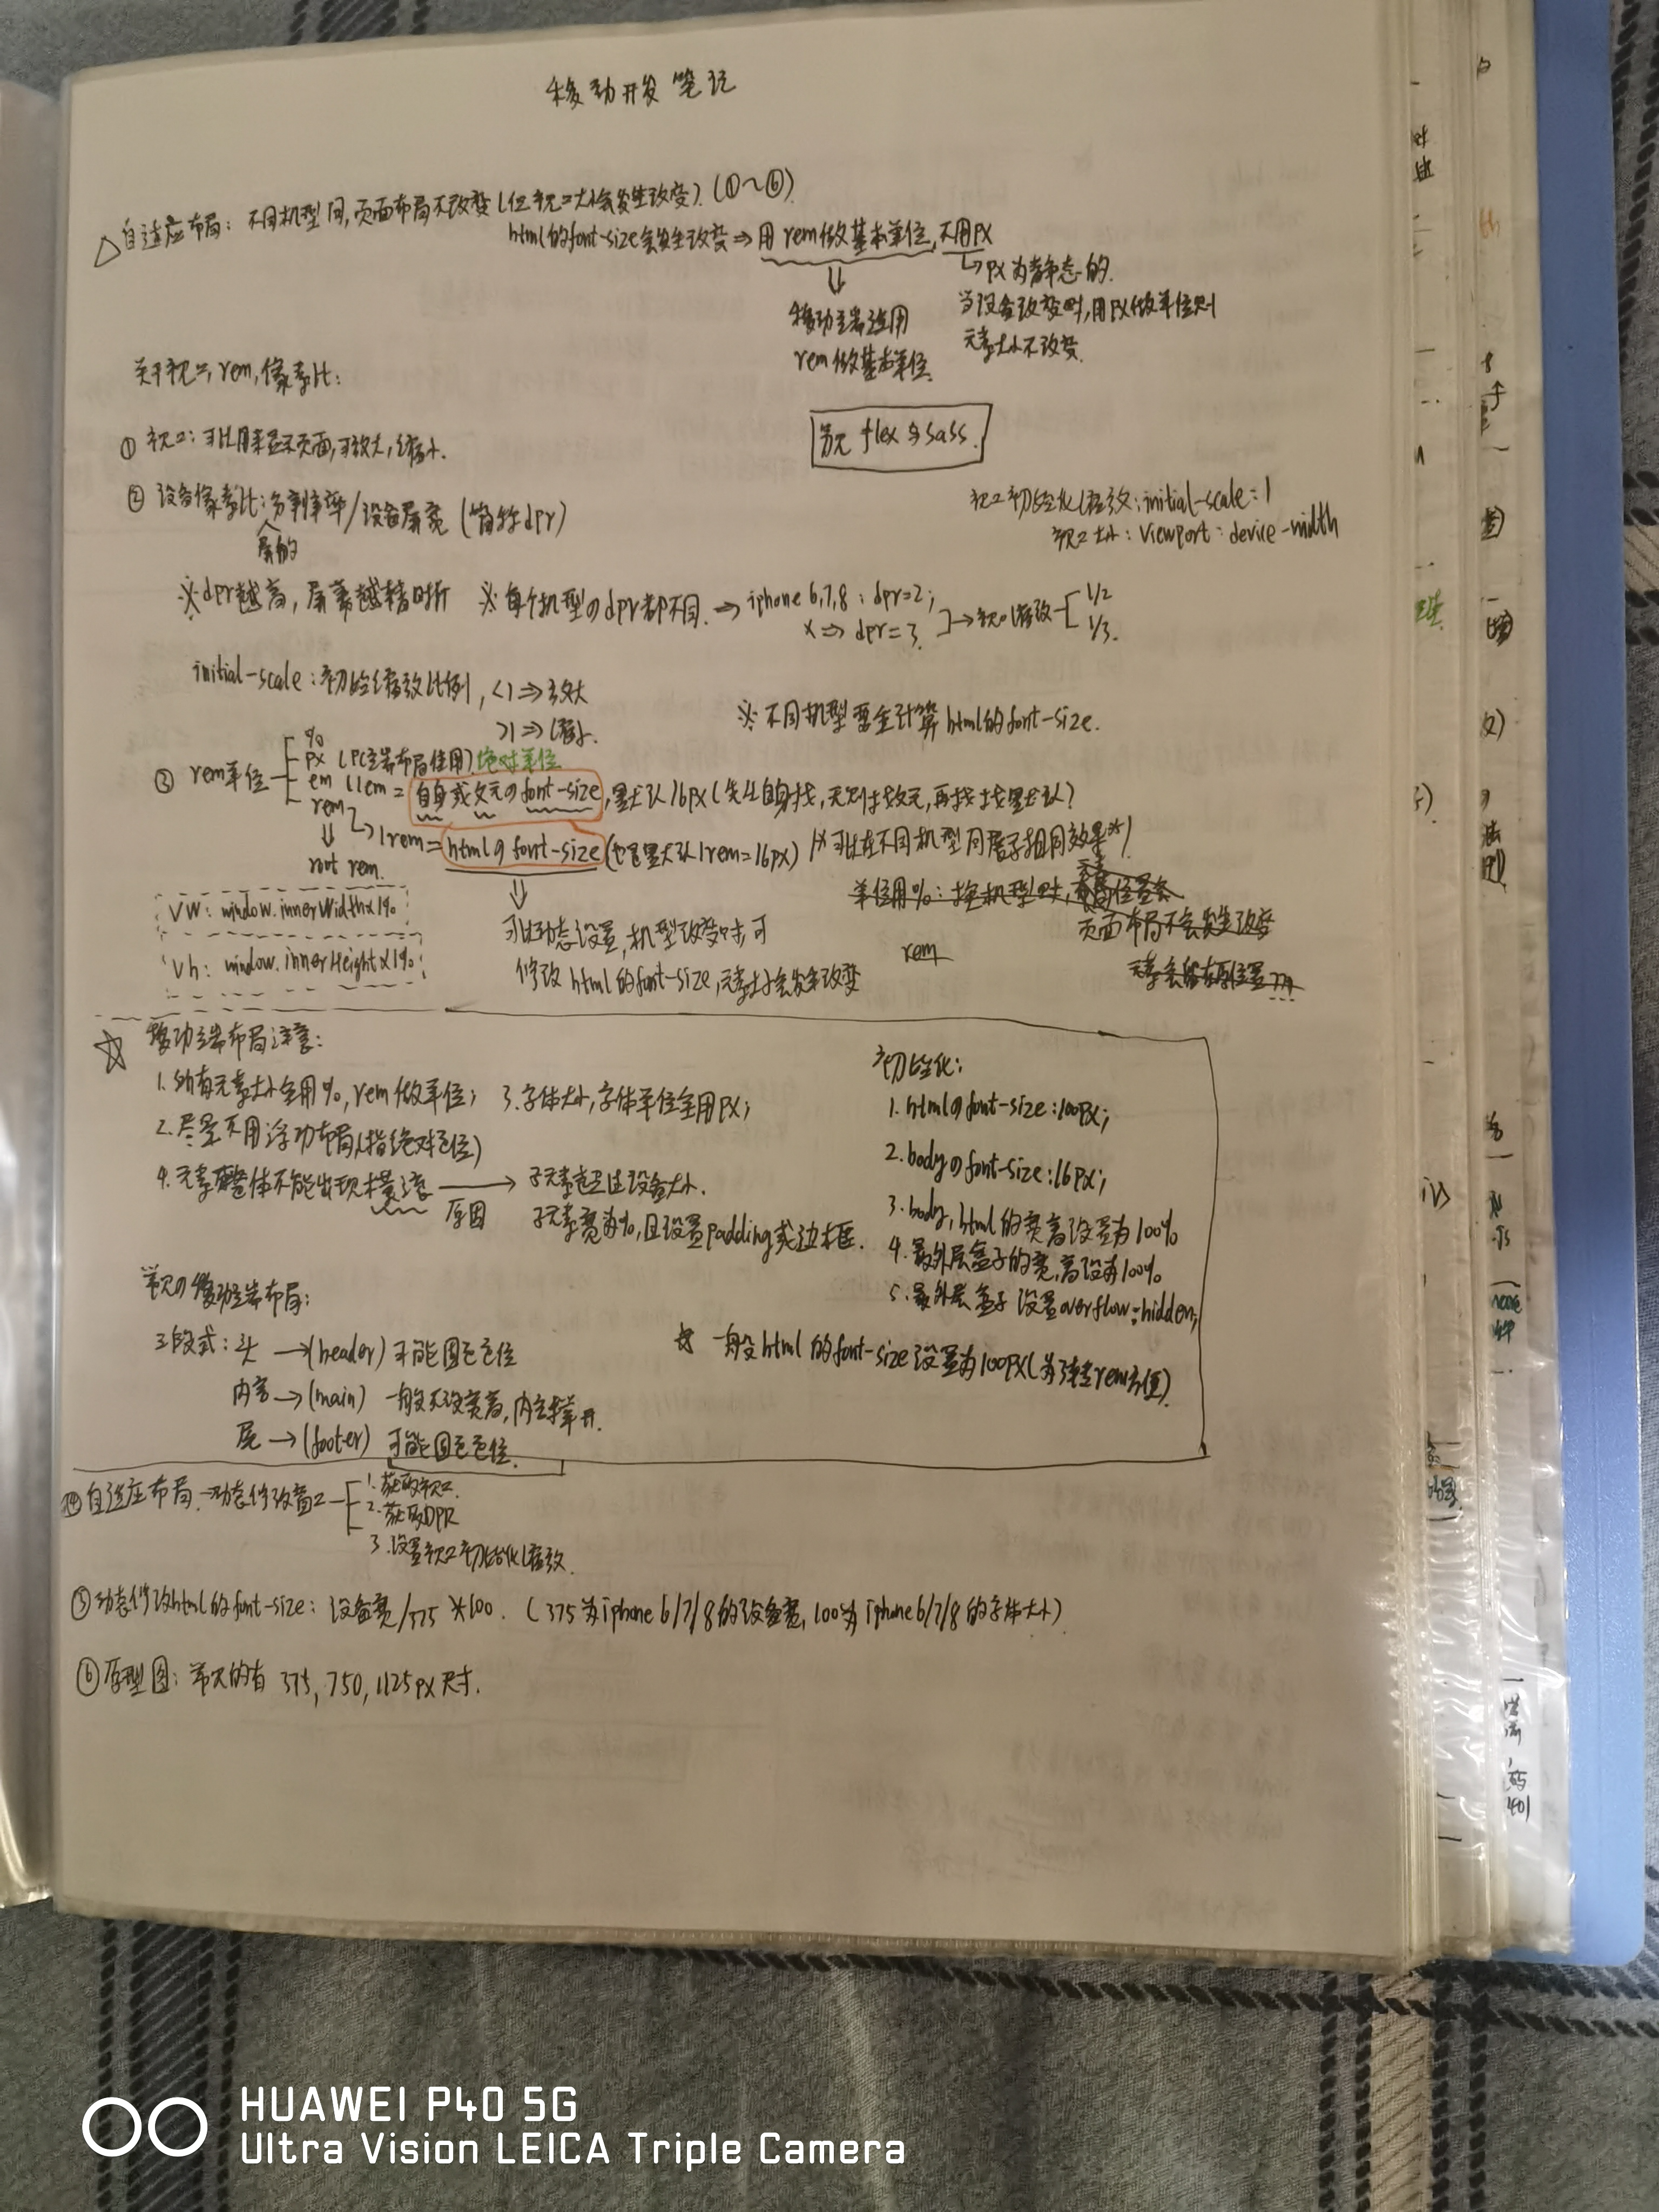 移动开发笔记
△自适应布局：不同机型间，页面布局不改变(但视口大小会发生改变).(①~⑥)
html的font-size会发生改变⇒用rem做基本单位,不用px
↳px为静态的.
当设备改变时,用px做单位则
元素大小不改变.
⇓
移动端选用
rem做基本单位.
关于视口,rem,像素比：
① 视口：可以用来显示页面,可放大,缩小.
另见 flex与sass.
② 设备像素比：分辨率/设备屏宽 (简称dpr)
屏的
视口初始化缩放:initial-scale:1
视口大小：viewport：device-width
※dpr越高，屏幕越精晰 ※每个机型の dpr都不同.⇒iphone 6,7,8：dpr=2;
x⇒dpr=3.
→视口缩放 1/2
1/3.
initial-scale：初始缩放比例, <1⇒放大
>1⇒缩小.
※不同机型要重计算html的font-size.
③ rem单位
%
px (PC端布局使用).绝对单位
em (1em=自身或父元の font-size,默认16px(先从自身找,无则找父元,再找找默认)
rem
↳1rem=html の font-size(也是默认1rem=16px) (※可以在不同机型间居于相同效果※)
⇓
root rem.
vw：window.innerWidth×1%
vh：window.innerHeight×1%
⇓
可以动态设置,机型改变时,可
修改html的font-size,元素大小会发生改变
单位用%：换机型时,
页面布局不会发生改变
rem
☆ 移动端布局注意：
1.所有元素大小全用%,rem做单位； 3.字体大小,字体单位全用px；
2.尽量不用浮动布局(指绝对定位)
4.元素整体不能出现横滚 → 子元素超过设备大小.
原因 子元素宽为%,且设置padding或边框.
初始化：
1.html の font-size:100px;
2.body の font-size:16px;
3.body,html的宽高设置为100%
4.最外层盒子的宽,高设为100%
5.最外层盒子设置overflow:hidden;
常见の移动端布局：
三段式：头 →(header) 可能固定定位
内容→(main) 一般不设宽高,内容撑开.
尾→(footer) 可能固定定位.
☆ 一般html的font-size设置为100px(为了转rem方便)
④自适应布局→动态修改窗口
1.获取视口.
2.获取DPR
3.设置视口初始化缩放.
⑤动态修改html的font-size：设备宽/375 *100. (375为iphone 6/7/8的设备宽,100为iphone 6/7/8的字体大小)
⑥原型图：常见的有 375, 750, 1125px尺寸.
HUAWEI P40 5G
Ultra Vision LEICA Triple Camera